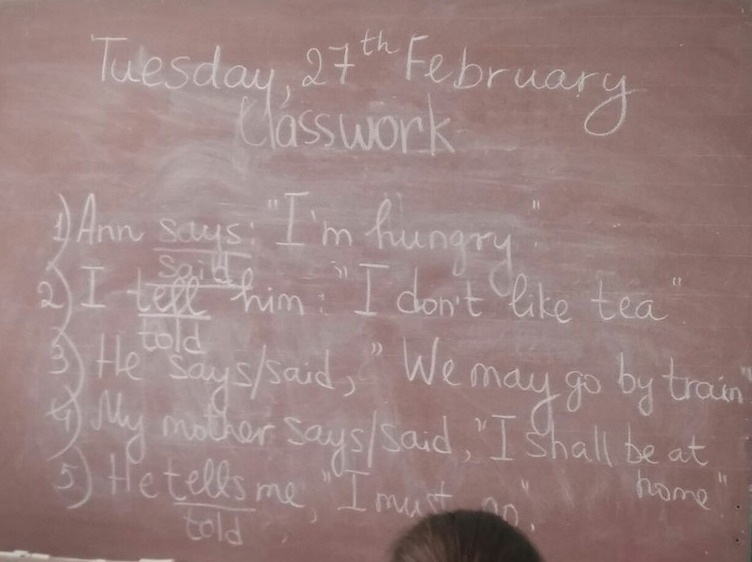 Tuesday, 27th February
Classwork
1) Ann says: "I'm hungry."
said
2) I tell him: "I don't like tea"
told
3) He says/said, "We may go by train"
4) My mother says/said, "I shall be at
home."
5) He tells me, "I must go."
told